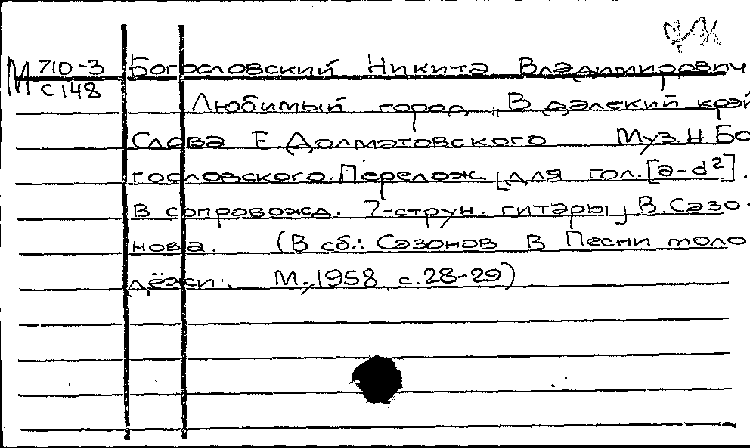 М 710-3 Богословский Никита Владимирович
С148
Любимый город. В далекий край
Слова Е. Долматовского Муз. Н. Бо
гословского. Перелож. [для гол. [a-d²].
В сопровожд. 7-струн. гитары] В. Сазо-
нова. (В сб.: Сазонов В Песни моло
дёжи. М., 1958, с. 28-29)